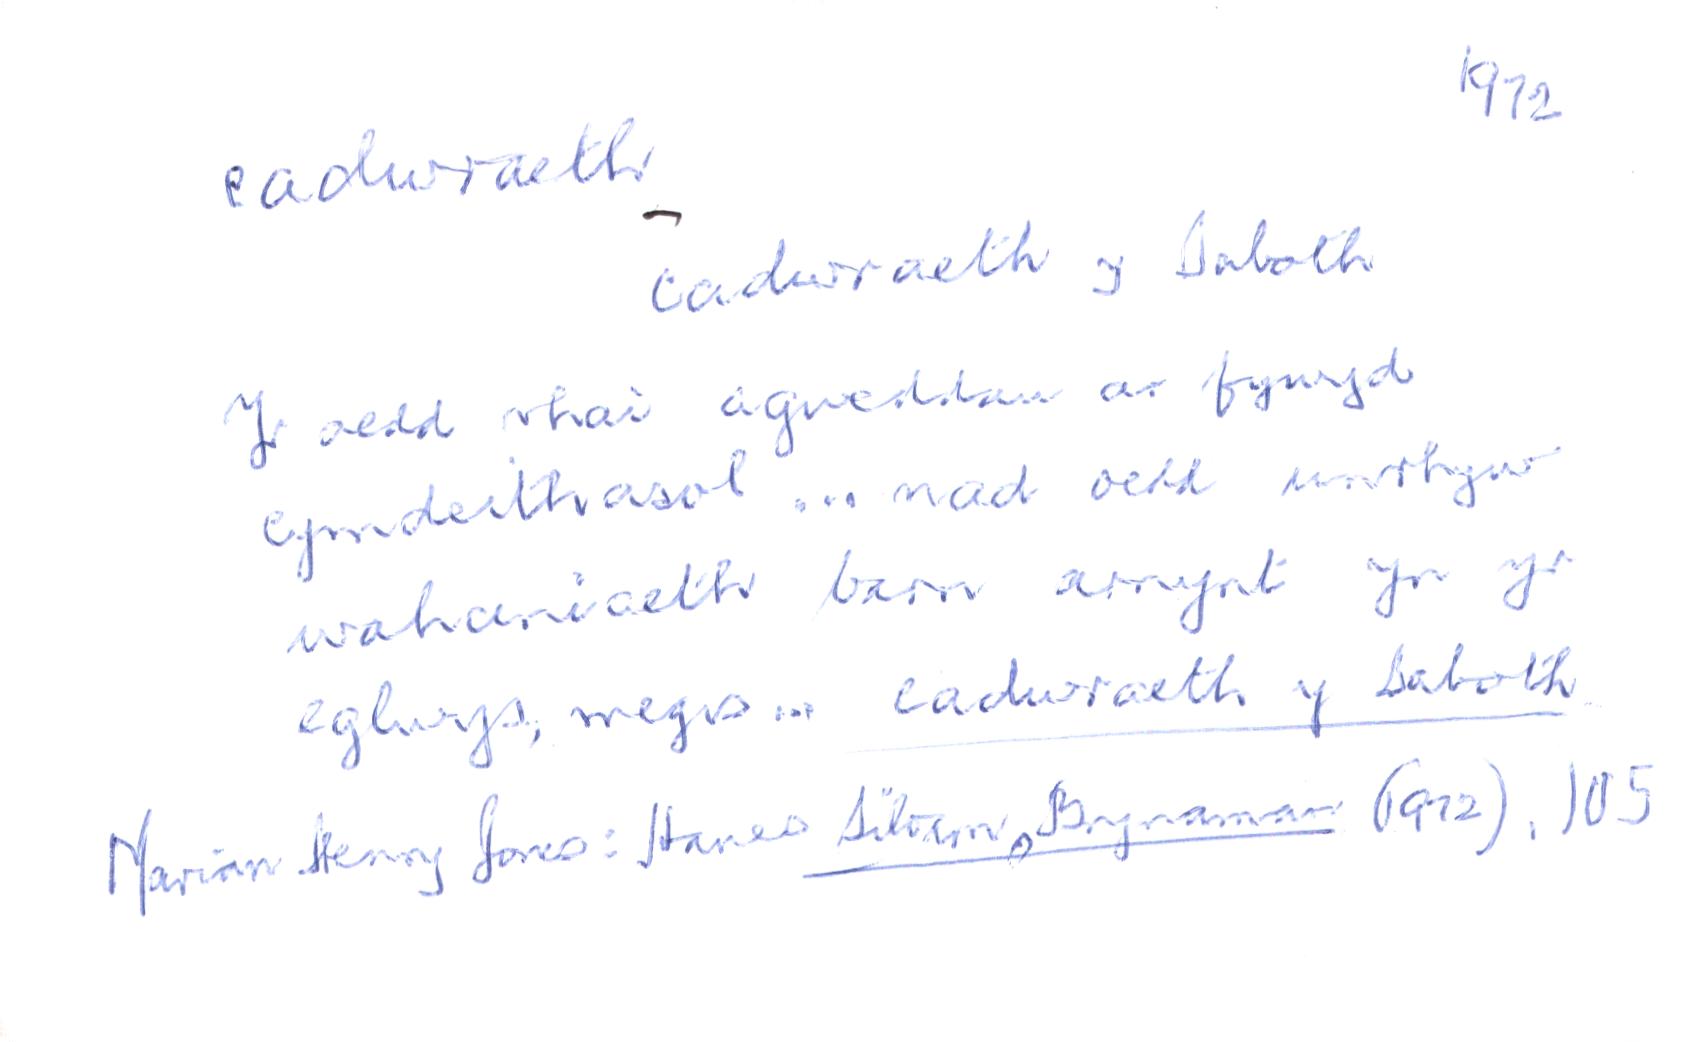 1972
cadwraeth
cadwraeth y Saboth
Yr oedd rhai agweddau ar fywyd
cymdeithasol ... nad oedd unrhyw
wahaniaeth barn arnynt yn yr
eglwys, megis ... cadwraeth y Saboth
Marian Henry Jones: Hanes Siloam, Brynaman (1972), 105